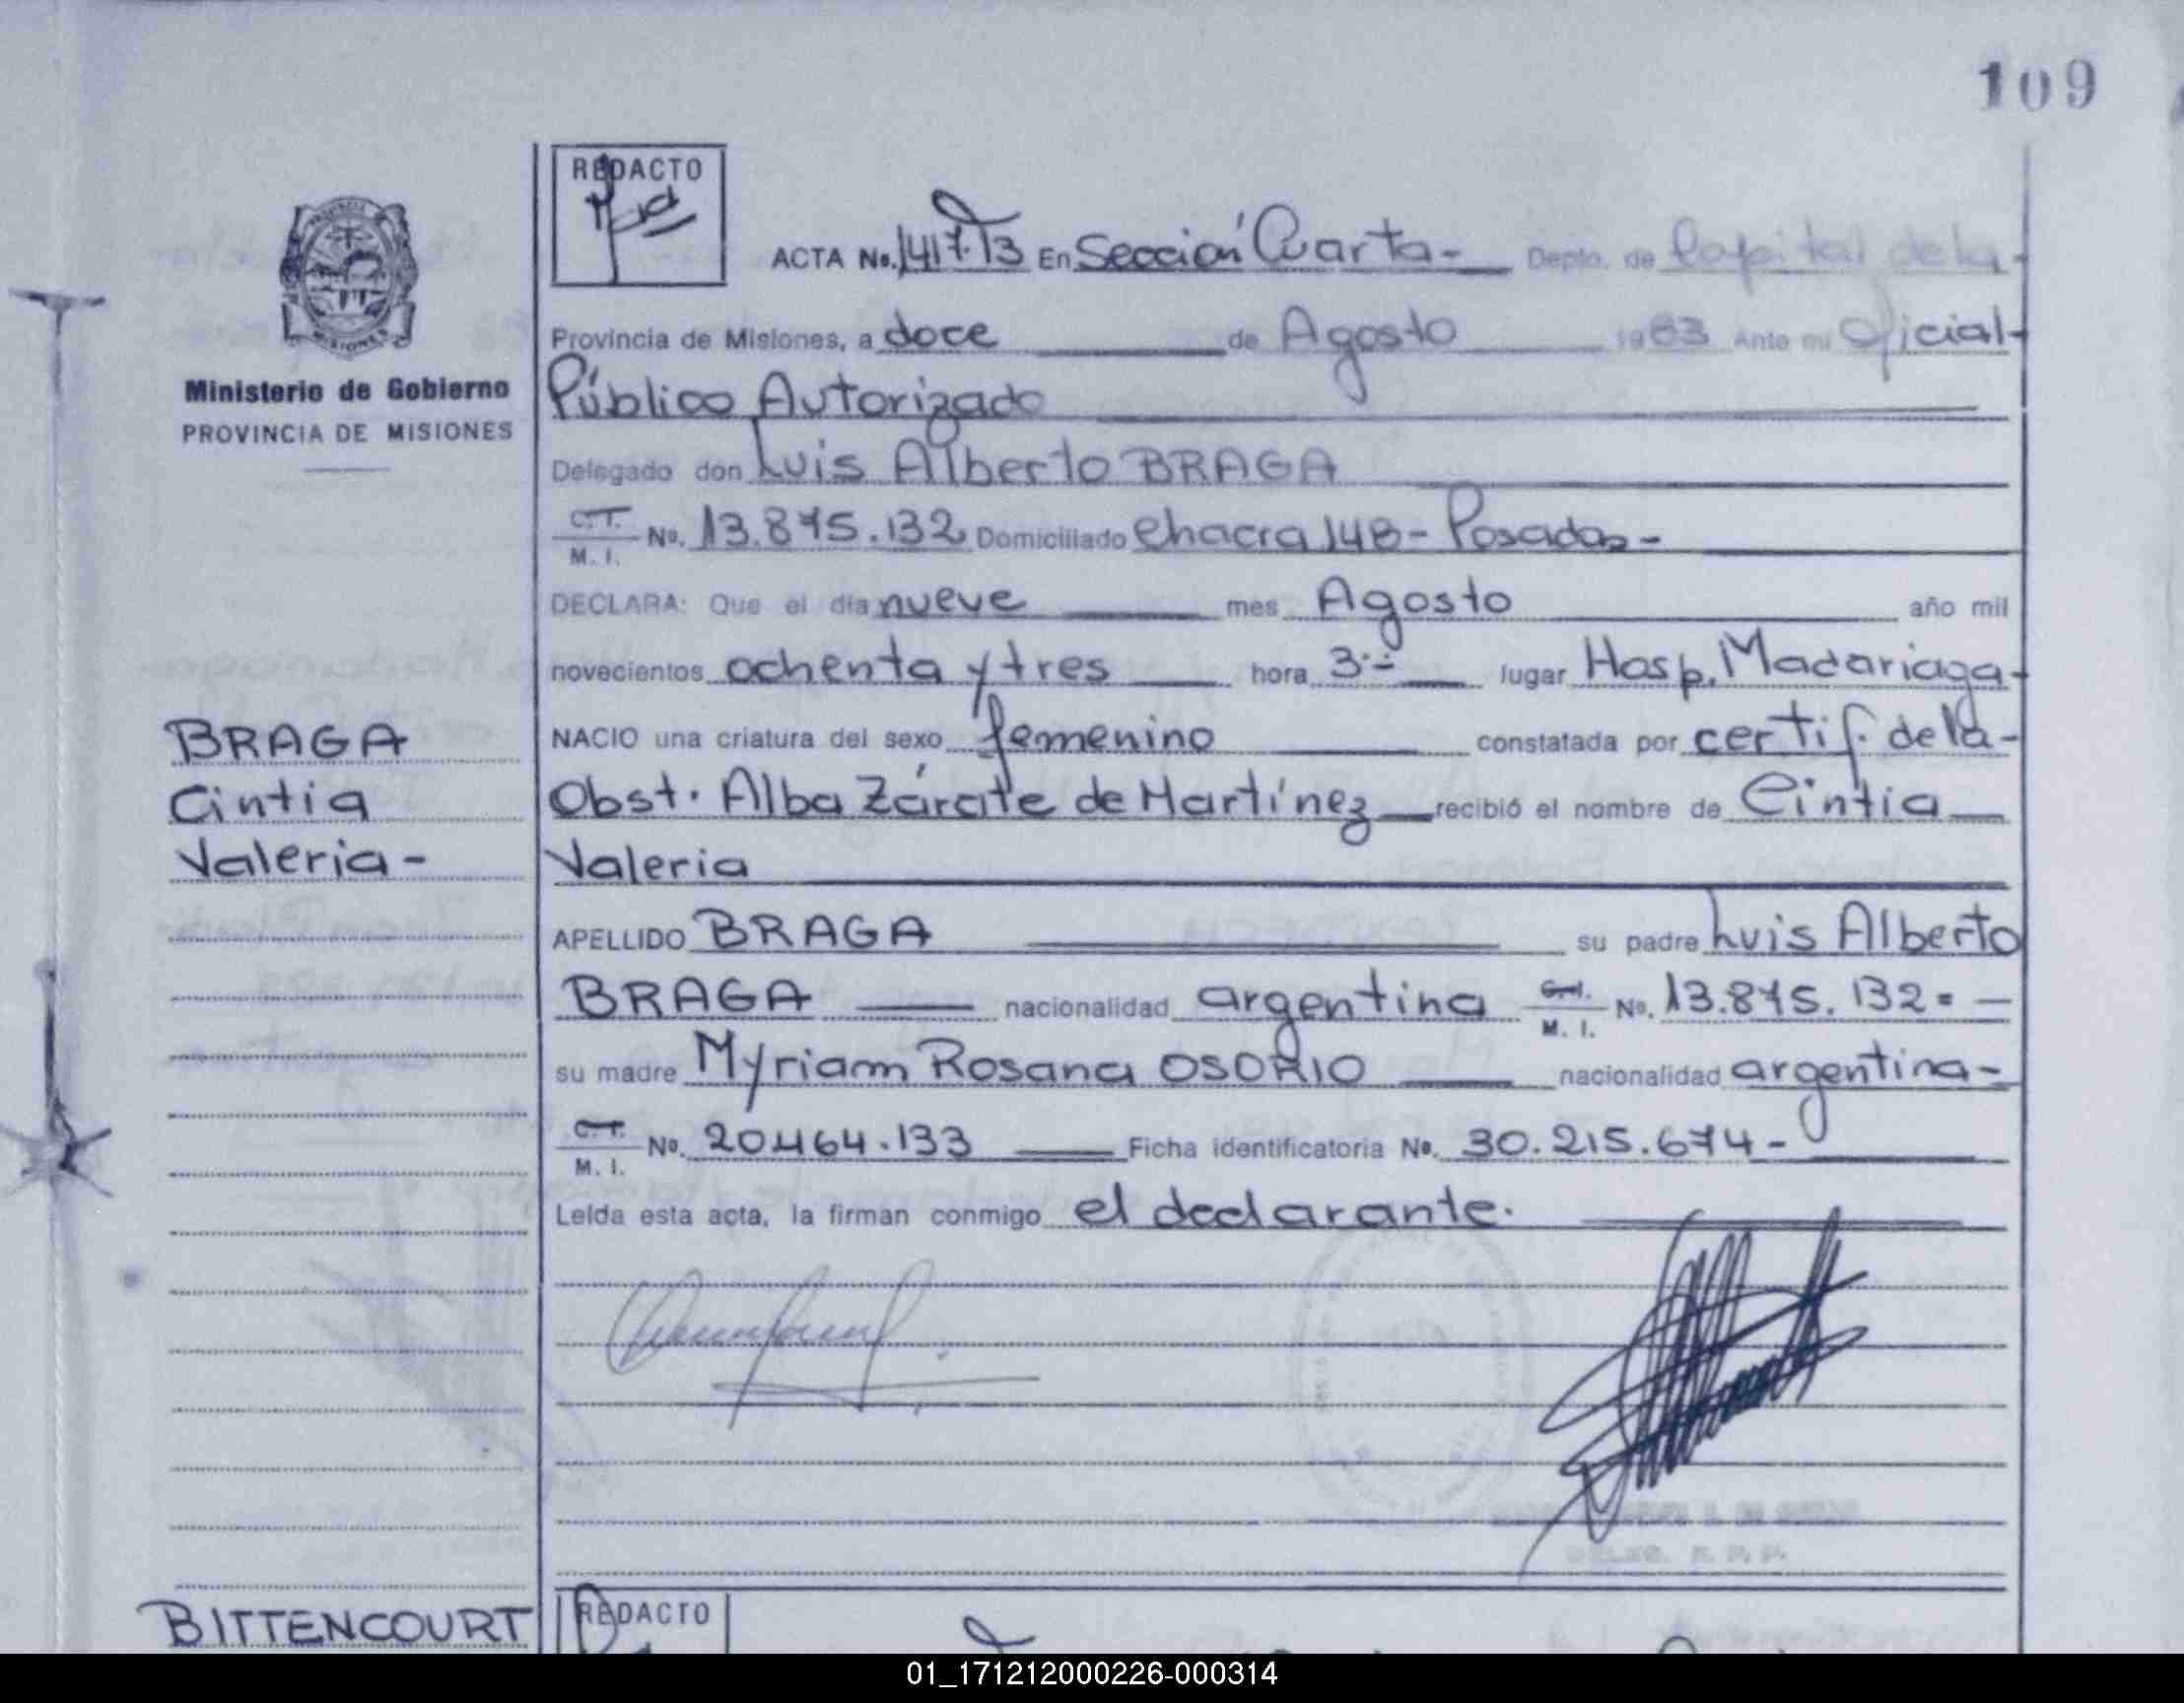 109
REDACTO
ACTA No. 1417-T3 En Sección Cuarta- Depto. de Capital de la-
Provincia de Misiones, a doce de Agosto 1983 Ante mi Oficial-
Ministerio de Gobierno
PROVINCIA DE MISIONES
Público Autorizado
Delegado don Luis Alberto BRAGA
C.I. M. I. No. 13.875.132 Domiciliado Chacra 148- Posadas-
DECLARA: Que el día nueve mes Agosto año mil
novecientos ochenta y tres hora 3:- lugar Hosp. Madariaga-
NACIO una criatura del sexo femenino constatada por certif. de la-
Obst. Alba Zárate de Martínez recibió el nombre de Cintia
Valeria
BRAGA
Cintia
Valeria-
APELLIDO BRAGA su padre Luis Alberto
BRAGA nacionalidad argentina C.I. M. I. No. 13.875.132=
su madre Myriam Rosana OSORIO nacionalidad argentina-
C.I. M. I. No. 20.464.133 Ficha identificatoria No. 30.215.674-
Leída esta acta, la firman conmigo el declarante.
BITTENCOURT
REDACTO
01_171212000226-000314